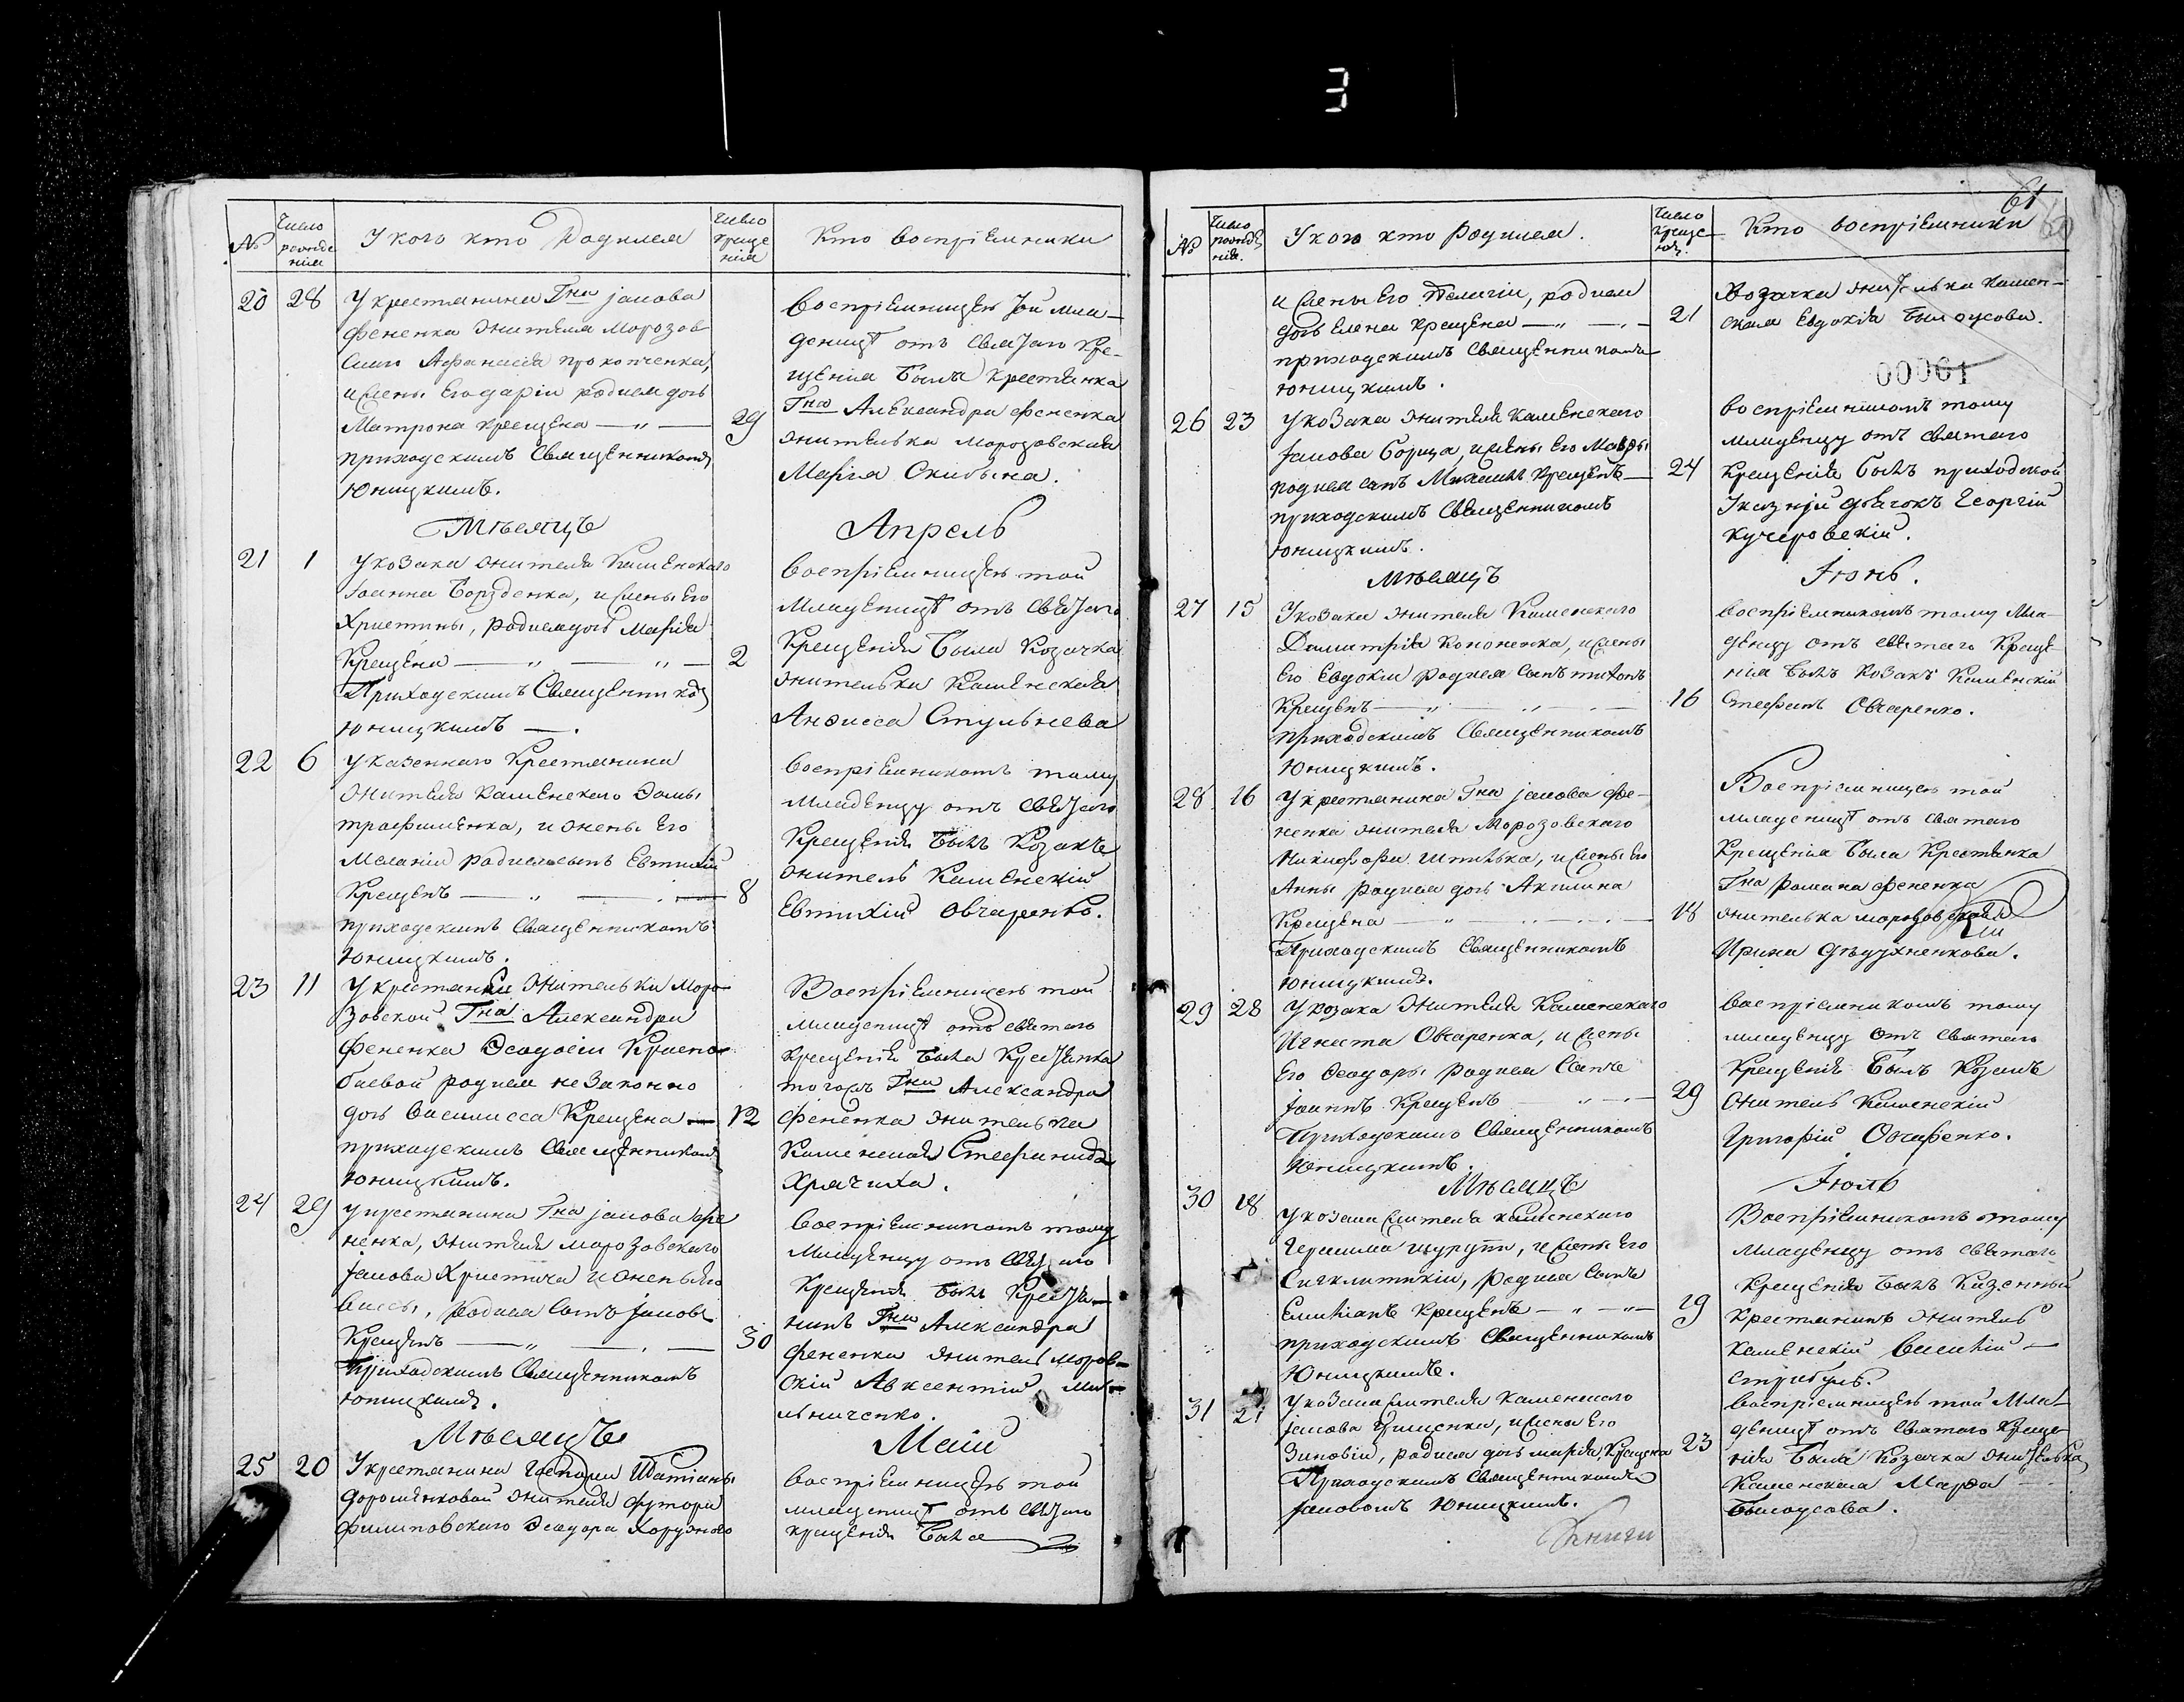 61
№
Число рожде ния
У кого кто Родился
Число креще ния
Кто воспріемники
20 28 У крестянина Гна Іакова
Фененка жителя Морозов
Афанасія Прокопченка,
и жены Его Даріи родилась дочь
Матрона крещена — „ — 29
приходскимъ Священникомъ
Юницкимъ.
воспріемницею той мла-
деницѣ отъ святаго кре-
щенія была крестянка
Гна Александра Фененка
жителька Морозовская
Марія Скибына.
Мѣсяцъ Апрель
21 1 У козака жителя Каменскаго
Іоанна Борзденка, и жены Его
Христины, родилась дочь Марія
Крещена — „ — „ — 2
Приходскимъ Священником
Юницкимъ —.
воспріемницею той
Младеницѣ отъ святаго
Крещенія была Козачка
жителька Каменская
Анфисса Стульнева
22 6 У казеннаго Крестянина
жителя Каменскаго Фомы
Трофименка, и жены Его
Меланіи родился сынъ Евтихій
Крещенъ — „ — 8
приходскимъ Священникомъ
Юницкимъ.
воспріемникомъ тому
Младенцу отъ святаго
Крещенія былъ Козакъ
житель Каменскій
Евтихій Овчаренко.
23 11 У крестянки жительки Моро
зовской Гна Александра
Фененка Феодосіи
родилась незаконно
дочь Василисса Крещена — 12
приходскимъ Священникомъ
Юницкимъ.
Воспріемницею той
младеницѣ отъ святаго
крещенія была крестянка
тогожъ Гна Александра
Фененка жителька
Каменская Стефанида
Храчиха.
24 29 У крестянина Гна Іакова Фе
ненка, жителя Морозовскаго
Іакова Христича и жены Его
Вассы, родился сынъ Іаковъ
Крещенъ — „ — 30
Приходскимъ Священникомъ
Юницкимъ.
воспріемникомъ тому
Младенцу отъ святаго
Крещенія былъ Крестя-
нинъ Гна Александра
Фененка житель Моров-
скій Авксентій Ми-
льниченко.
Мѣсяцъ Маій
25 20 У крестянина Госпожи Татіаны
Дорошенковой жителя футора
Филиповскаго Феодора Хоружого
воспріемницею той
младеницѣ отъ святаго
крещенія была
№
Число рожде нія.
У кого кто родился.
Число креще нія.
Кто воспріемники
и жены Его Пелагіи, родилась
дочь Елена крещена — „ — 21
приходскимъ Священникомъ
Юницкимъ.
Козачка жителька Камен-
ская Евдокія Былоусова.
00061
26 23 У козака жителя Каменскаго
Іакова Борща, и жены Его Мавры
родился сынъ Михаилъ Крещенъ — 24
приходскимъ Священникомъ
Юницкимъ.
воспріемникомъ тому
младенцу отъ святаго
Крещенія былъ приходской
Указній дьячокъ Георгій
Кучеровскій.
Мѣсяцъ Іюнь.
27 15 У козака жителя Каменскаго
Димитрія Кононенка, и жены
Его Евдокіи родился сынъ Тихонъ
Крещенъ — „ — „ — 16
приходскимъ Священникомъ
Юницкимъ.
воспріемникомъ тому Мла-
денцу отъ святаго Креще-
нія былъ Козакъ Каменскій
Стефанъ Овчаренко.
28 16 У крестянина Гна Іакова Фе-
ненка жителя Морозовскаго
Никифора и жены Его
Анны родилась дочь Акилина
Крещена — „ — 18
Приходскимъ Священникомъ
Юницкимъ.
Воспріемницею той
младеницѣ отъ святаго
Крещенія была Крестянка
Гна Романа Фененка
жителька Морозовская
Ирина
29 28 У козака жителя Каменскаго
Игната Овчаренка, и жены
Его Феодоры родился Сынъ
Іоаннъ Крещенъ — „ — 29
Приходскимъ Священникомъ
Юницкимъ.
воспріемникомъ тому
младенцу отъ святаго
Крещенія былъ Козакъ
житель Каменскій
Григорій Овчаренко.
Мѣсяцъ Іюль
30 18 У козака жителя Каменскаго
Герасима Цурупы, и жены Его
Сигклитикіи, родился Сынъ
Емиліанъ Крещенъ — „ — „ — 19
приходскимъ Священникомъ
Юницкимъ.
Воспріемникомъ тому
Младенцу отъ святаго
Крещенія былъ Казенный
Крестянинъ житель
Каменскій Василій —
Стрибуль.
31 21 У козака жителя Каменскаго
Іакова и жены Его
Зиновіи, родилась дочь Марія, Крещена 23
Приходскимъ Священникомъ
Іаковомъ Юницкимъ.
воспріемницею той Мла-
деницѣ отъ святаго Креще-
нія была Козачка жителька
Каменская Марфа
Былоусова.
Книги